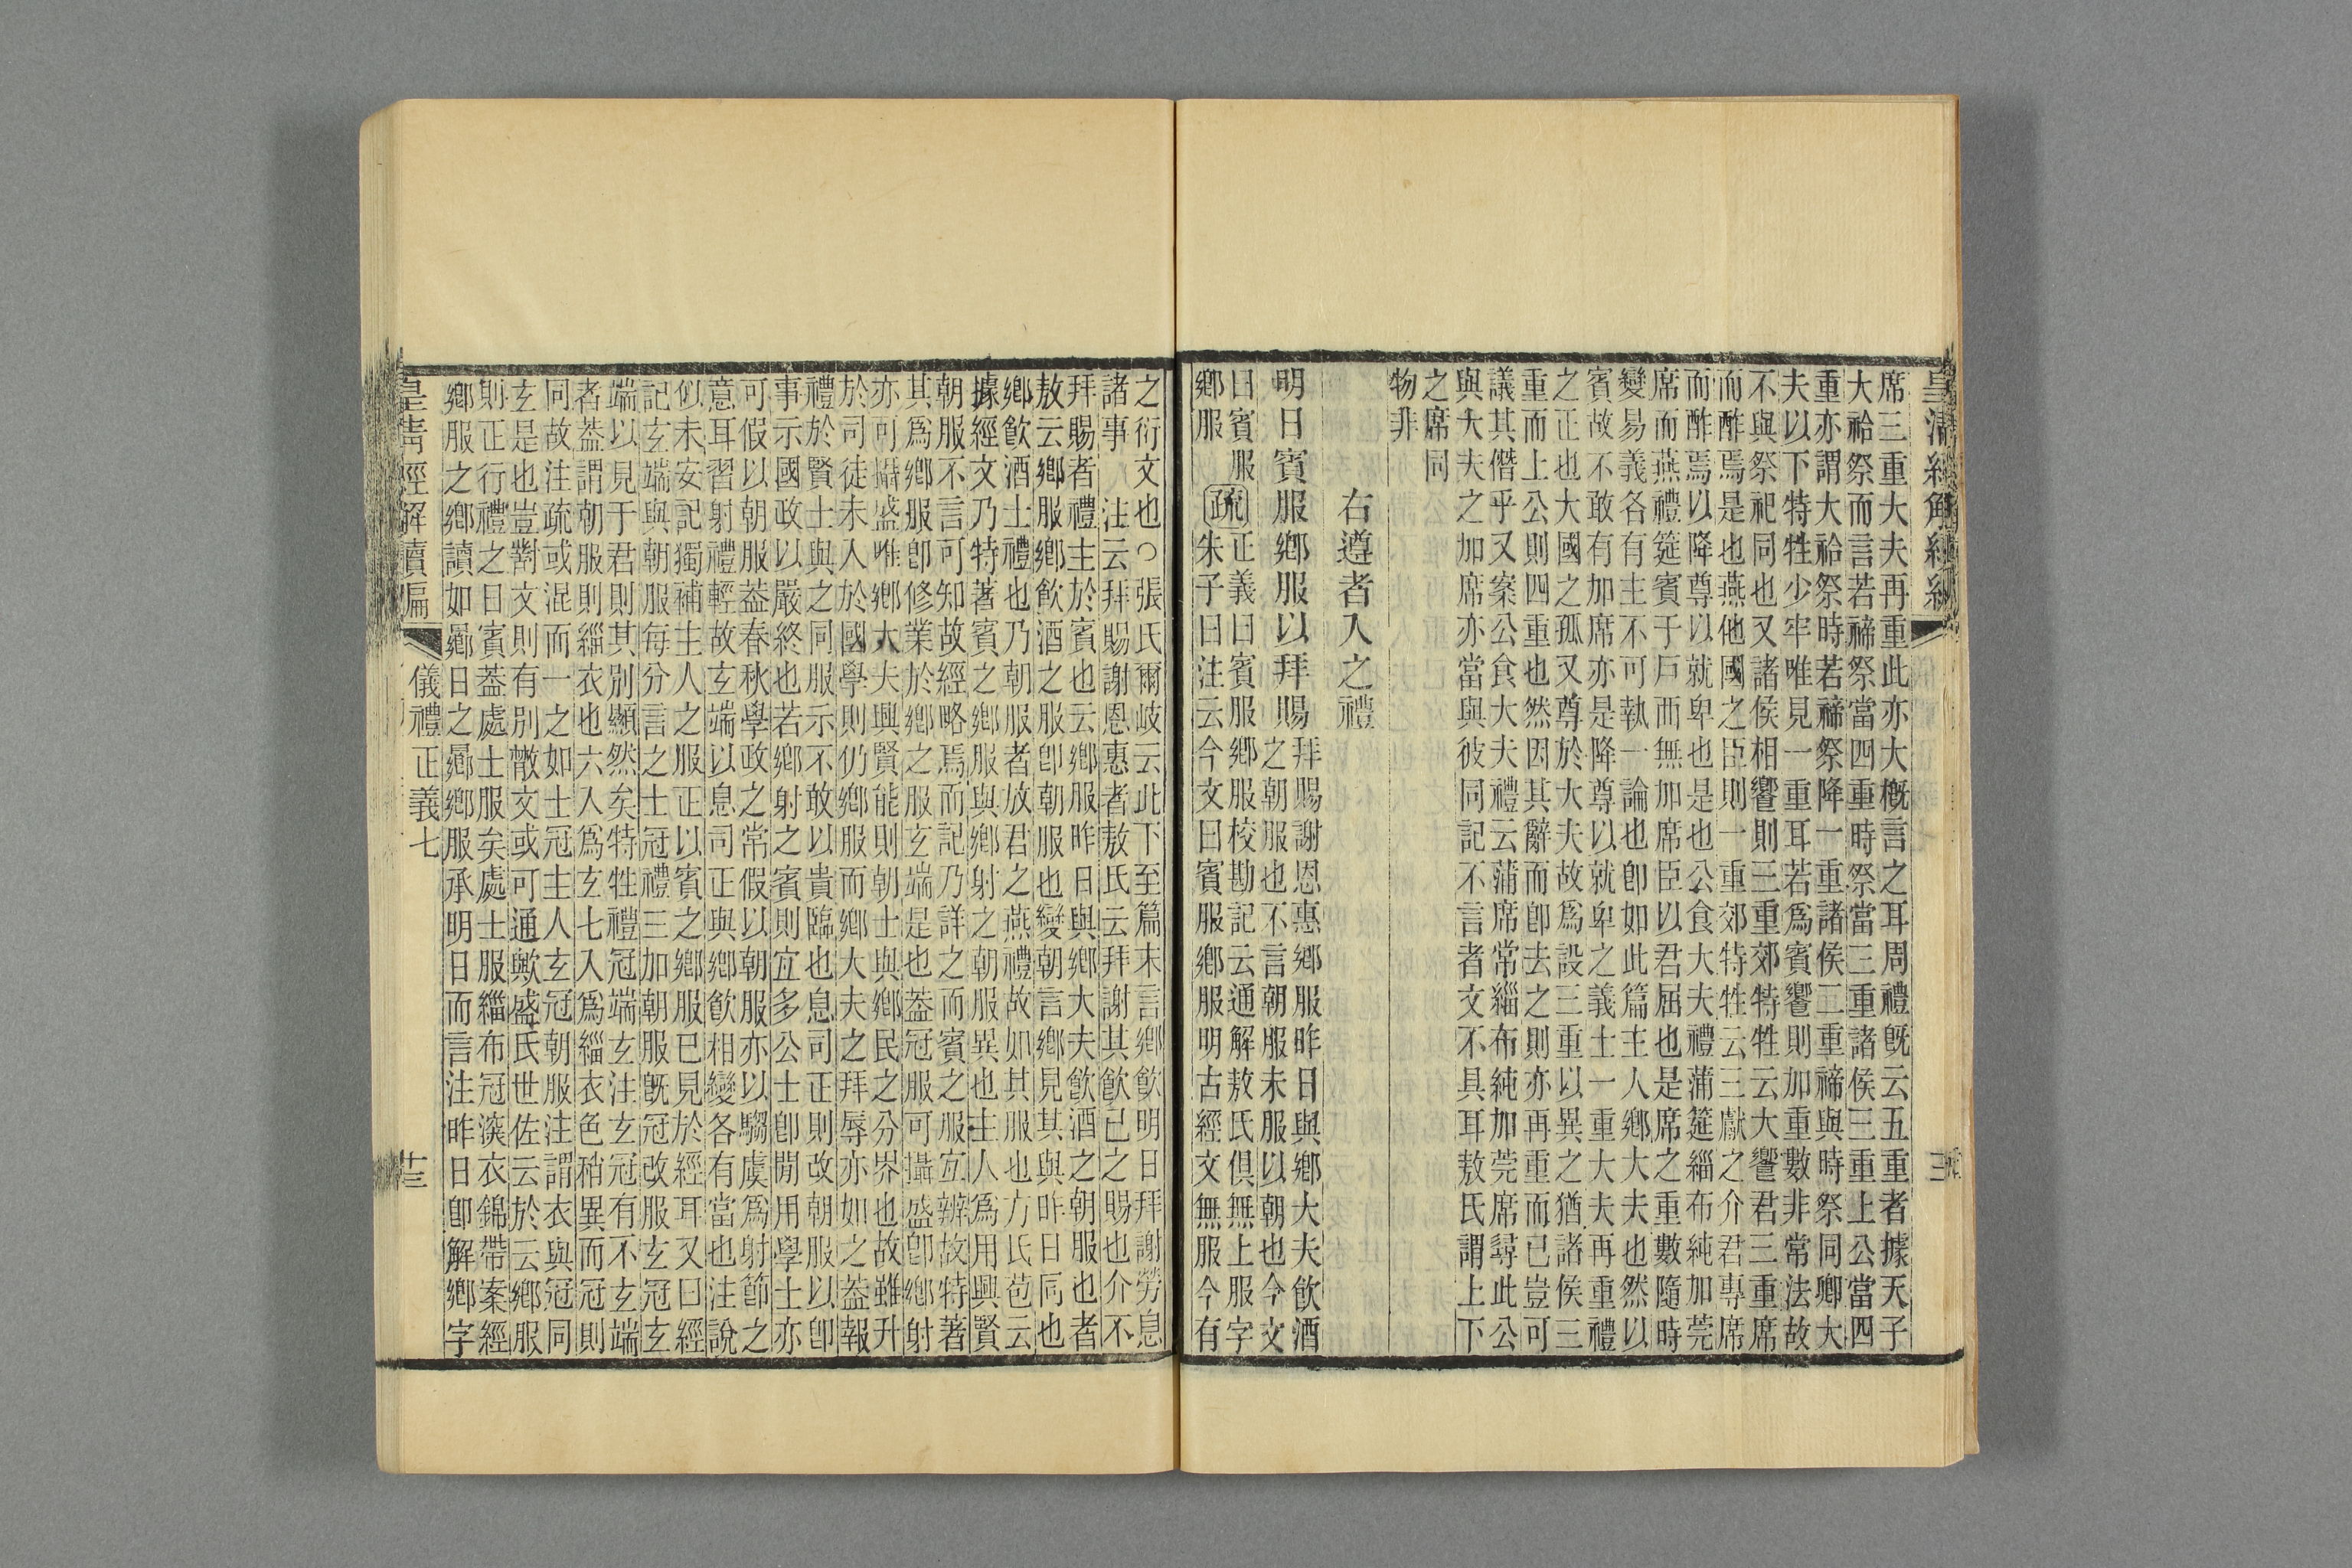 皇清經解續編
席三重大夫再重此亦大槪言之耳周禮旣云五重者據天子
大祫祭而言若禘祭當四重時祭當三重諸侯三重上公當四
重亦謂大祫祭時若禘祭降一重諸侯二重禘與時祭同卿大
夫以下特牲少牢唯見一重耳若爲賓饗則加重數非常法故
不與祭祀同也又諸侯相饗則三重郊特牲云大饗君三重席
而酢焉是也燕他國之臣則一重郊特牲云三獻之介君專席
而酢焉以降尊以就卑也是也公食大夫禮蒲筵緇布純加莞
席而燕禮筵賓于戶而無加席臣以君屈也是席之重數隨時
變易義各有主不可執一論也卽如此篇主人鄕大夫也然以
賓故不敢有加席亦是降尊以就卑之義士一重大夫再重禮
之正也大國之孤又尊於大夫故爲設三重以異之猶諸侯三
重而上公則四重也然因其辭而卽去之則亦再重而已豈可
議其僭乎又案公食大夫禮云蒲席常緇布純加莞席尋此公
與大夫之加席亦當與彼同記不言者文不具耳敖氏謂上下
之席同
物非
右遵者入之禮
明日賓服鄕服以拜賜
拜賜謝恩惠鄕服昨日與鄕大夫飲酒
之朝服也不言朝服未服以朝也今文
曰賓服
鄕服
疏
正義曰賓服鄕服校勘記云通解敖氏俱無上服字
朱子曰注云今文曰賓服鄕服明古經文無服今有
之衍文也○張氏爾岐云此下至篇末言鄕飲明日拜謝勞息
諸事 注云拜賜謝恩惠者敖氏云拜謝其飲已之賜也介不
拜賜者禮主於賓也云鄕服昨日與鄕大夫飲酒之朝服也者
敖云鄕服鄕飲酒之服卽朝服也變朝言鄕見其與昨日同也
鄕飲酒士禮也乃朝服者放君之燕禮故如其服也方氏苞云
據經文乃特著賓之鄕服與鄕射之朝服異也主人爲用興賢
朝服不言可知故經略焉而記乃詳之而賓之服宜辨故特著
其爲鄕服卽修業於鄕之服玄端是也蓋冠服可攝盛卽鄕射
亦可攝盛唯鄕大夫興賢能則朝士與鄕民之分界也故雖升
於司徒未入於國學則仍鄕服而鄕大夫之拜辱亦如之蓋報
禮於賢士與之同服示不敢以貴臨也息司正則改朝服以卽
事示國政以嚴終也若鄕射之賓則宜多公士卽閒用學士亦
可假以朝服蓋春秋學政之常假以朝服亦以騶虞爲射節之
意耳習射禮輕故玄端以息司正與鄕飲相變各有當也注說
似未安記獨補主人之服正以賓之鄕服已見於經耳又曰經
記玄端與朝服每分言之士冠禮三加朝服旣冠改服玄冠玄
端以見于君則其別顯然矣特牲禮冠端玄注玄冠有不玄端
者蓋謂朝服則緇衣也六人爲玄七入爲緇衣色稍異而冠則
同故注疏或混而一之如士冠主人玄冠朝服注謂衣與冠同
玄是也豈對文則有別散文或可通歟盛氏世佐云於云鄕服
則正行禮之日賓蓋處士服矣處士服緇布冠㴱衣錦帶案經
鄕服之鄕讀如曏日之曏鄕服承明日而言注昨日卽解鄕字
皇清經解續編
儀禮正義七